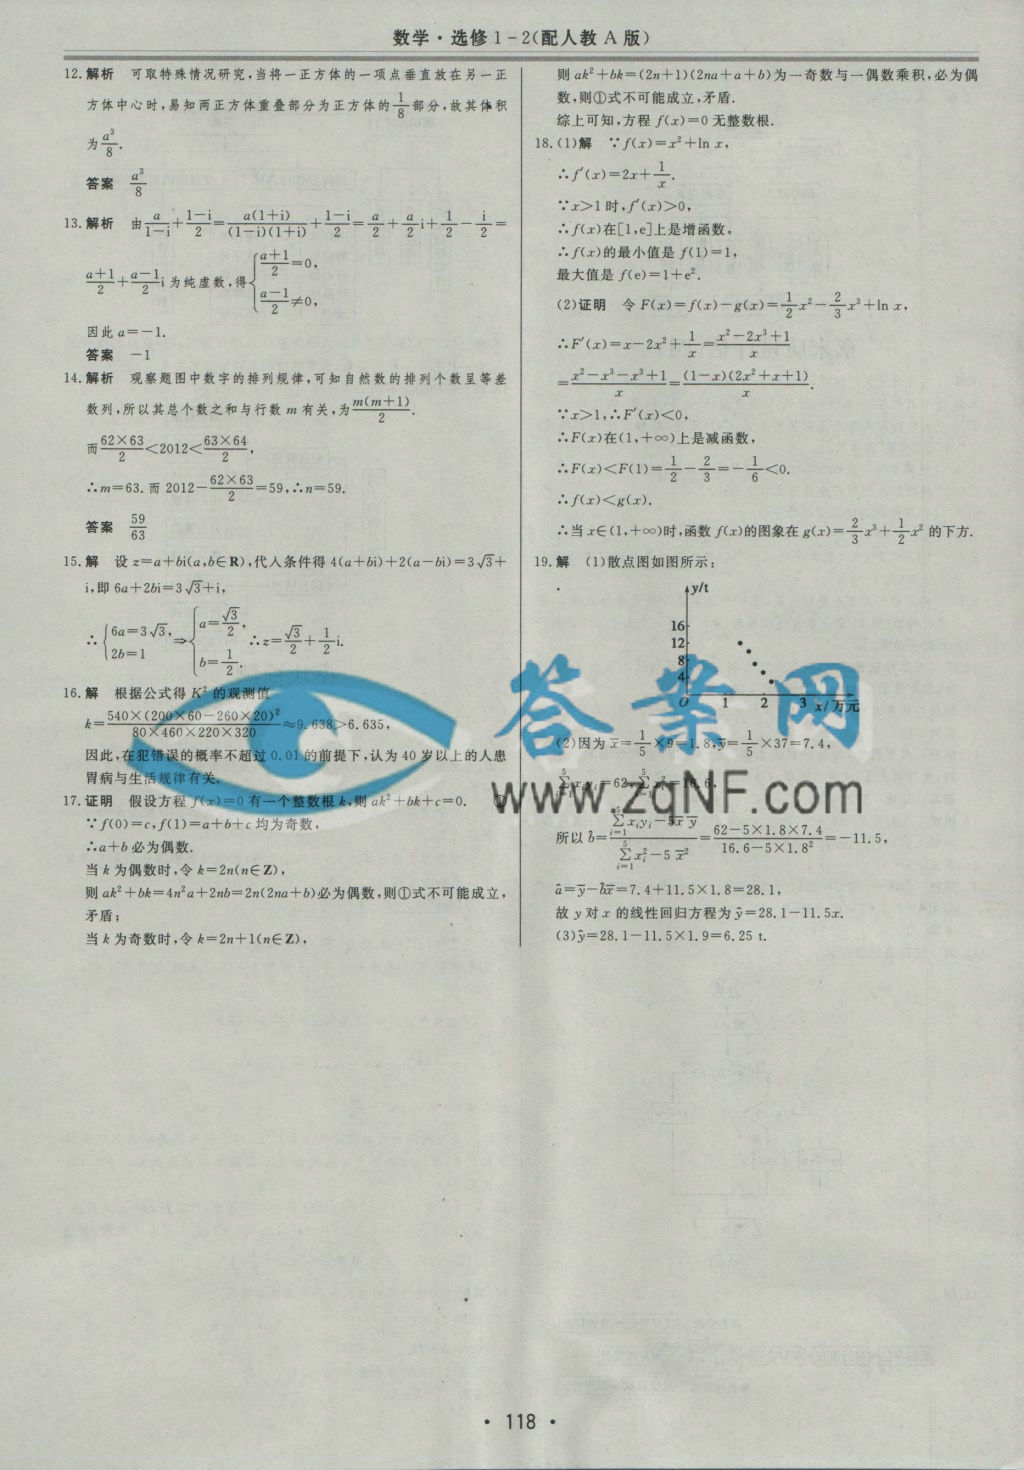 数学·选修1-2(配人教A版)
12.解析 可取特殊情况研究,当将一正方体的一项点垂直放在另一正
方体中心时,易知两正方体重叠部分为正方体的1/8部分,故其体积
为a³/8.
答案 a³/8
13.解析 由a/(1-i)+(1-i)/2=a(1+i)/((1-i)(1+i))+(1-i)/2=a/2+a/2i+1/2-i/2=
(a+1)/2+(a-1)/2i为纯虚数,得{(a+1)/2=0, (a-1)/2≠0,
因此a=-1.
答案 -1
14.解析 观察题图中数字的排列规律,可知自然数的排列个数呈等差
数列,所以其总个数之和与行数m有关,为m(m+1)/2.
而62×63/2<2012<63×64/2,
∴m=63.而2012-62×63/2=59,∴n=59.
答案 59/63
15.解 设z=a+bi(a,b∈R),代入条件得4(a+bi)+2(a-bi)=3√3+
i,即6a+2bi=3√3+i,
∴{6a=3√3, 2b=1⇒{a=√3/2, b=1/2. ∴z=√3/2+1/2i.
16.解 根据公式得K²的观测值
k=540×(200×60-260×20)²/(80×460×220×320)≈9.638>6.635,
因此,在犯错误的概率不超过0.01的前提下,认为40岁以上的人患
胃病与生活规律有关.
17.证明 假设方程f(x)=0有一个整数根k,则ak²+bk+c=0. ①
∵f(0)=c,f(1)=a+b+c均为奇数,
∴a+b必为偶数.
当k为偶数时,令k=2n(n∈Z),
则ak²+bk=4n²a+2nb=2n(2na+b)必为偶数,则①式不可能成立,
矛盾;
当k为奇数时,令k=2n+1(n∈Z),
则ak²+bk=(2n+1)(2na+a+b)为一奇数与一偶数乘积,必为偶
数,则①式不可能成立,矛盾.
综上可知,方程f(x)=0无整数根.
18.(1)解 ∵f(x)=x²+ln x,
∴f′(x)=2x+1/x.
∵x>1时,f′(x)>0,
∴f(x)在[1,e]上是增函数,
∴f(x)的最小值是f(1)=1,
最大值是f(e)=1+e².
(2)证明 令F(x)=f(x)-g(x)=1/2x²-2/3x³+ln x,
∴F′(x)=x-2x²+1/x=(x²-2x³+1)/x
=(x²-x³-x³+1)/x=(1-x)(2x²+x+1)/x.
∵x>1,∴F′(x)<0,
∴F(x)在(1,+∞)上是减函数,
∴F(x)<F(1)=1/2-2/3=-1/6<0.
∴f(x)<g(x).
∴当x∈(1,+∞)时,函数f(x)的图象在g(x)=2/3x³+1/2x²的下方.
19.解 (1)散点图如图所示:
y/t
16
12
8
4
O 1 2 3 x/万元
(2)因为x̄=1/5×9=1.8,ȳ=1/5×37=7.4,
5∑i=1 xᵢyᵢ=62,5∑i=1 xᵢ²=16.6,
所以b̂=(5∑i=1 xᵢyᵢ-5x̄ȳ)/(5∑i=1 xᵢ²-5x̄²)=(62-5×1.8×7.4)/(16.6-5×1.8²)=-11.5,
â=ȳ-b̂x̄=7.4+11.5×1.8=28.1,
故y对x的线性回归方程为ŷ=28.1-11.5x.
(3)ŷ=28.1-11.5×1.9=6.25 t.
答案网
www.zqNF.com
·118·